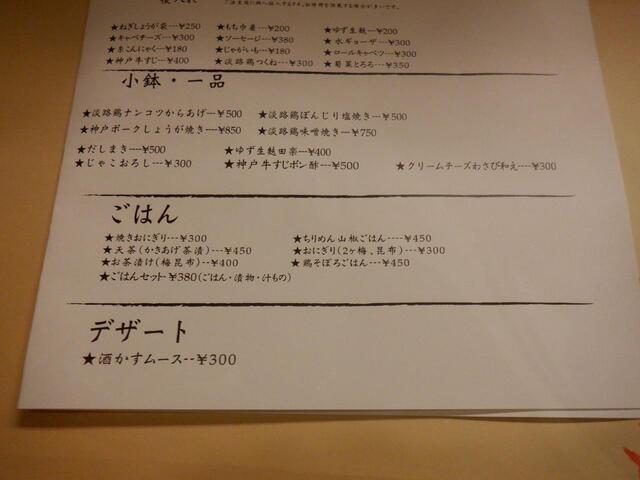 後入れ
★ねぎしょうが袋---¥250 ★もち巾着---¥200 ★ゆず生麩---¥200
★キャベチーズ---¥300 ★ソーセージ---¥380 ★水ギョーザ---¥300
★糸こんにゃく---¥180 ★じゃがいも---¥180 ★ロールキャベツ---¥300
★神戸牛すじ---¥400 ★淡路鶏つくね---¥300 ★菊菜とろろ---¥350
小鉢・一品
★淡路鶏ナンコツからあげ--¥500 ★淡路鶏ぼんじり塩焼き--¥500
★神戸ポークしょうが焼き--¥850 ★淡路鶏味噌焼き---¥750
★だしまき---¥500 ★ゆず生麩田楽---¥400
★じゃこおろし---¥300 ★神戸牛すじポン酢---¥500 ★クリームチーズわさび和え----¥300
ごはん
★焼きおにぎり---¥300 ★ちりめん山椒ごはん----¥450
★天茶(かきあげ茶漬)---¥450 ★おにぎり(2ヶ梅、昆布)---¥300
★お茶漬け(梅昆布)---¥400 ★鶏そぼろごはん---¥450
★ごはんセット¥380(ごはん・漬物・汁もの)
デザート
★酒かすムース--¥300